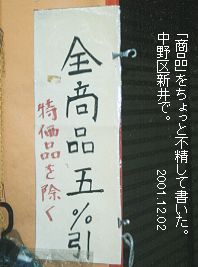 「商品」をちょっと不精して書いた。
中野区新井で。　2001.12.02
全商品五％引
特価品を除く